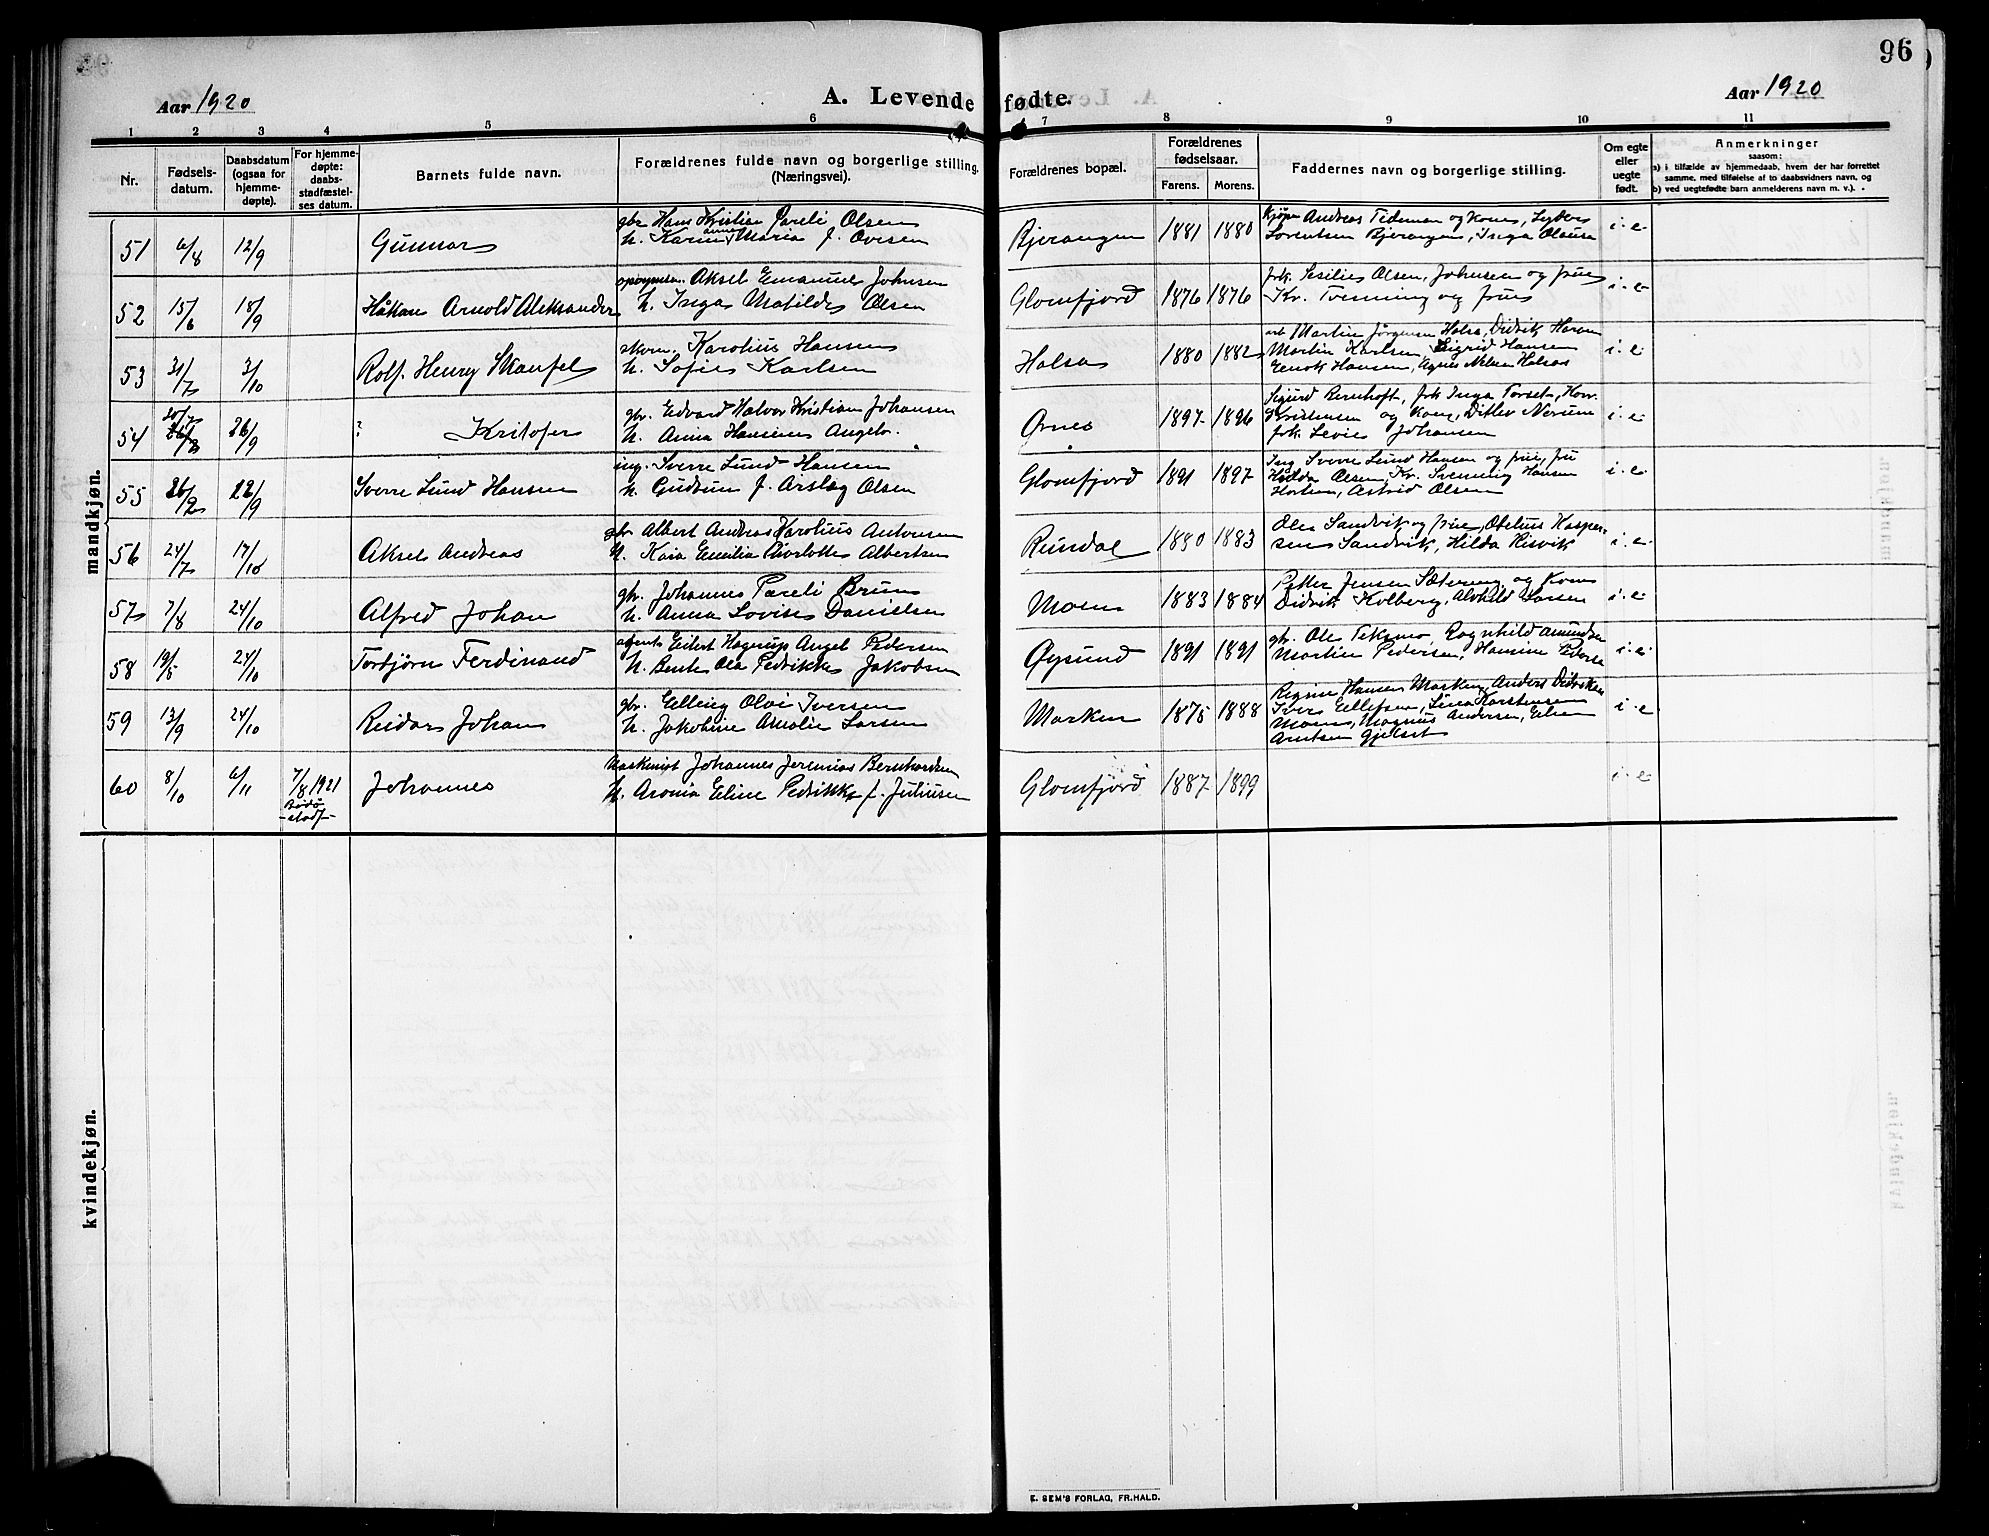 96
Aar 1920
A. Levende fødte.
Aar 1920
1 2 3 4 5 6 7 8 9 10 11
Nr.
Fødsels-
datum.
Daabsdatum
(ogsaa for
hjemme-
døpte).
For hjemme-
døpte:
daabs-
stadfæstel-
ses datum.
Barnets fulde navn.
Forældrenes fulde navn og borgerlige stilling.
(Næringsvei).
Forældrenes bopæl.
Forældrenes
fødselsaar.
Farens. Morens.
Faddernes navn og borgerlige stilling.
Om egte
eller
uegte
født.
Anmerkninger
saasom:
a) i tilfælde av hjemmedaab, hvem der har forrettet
samme, med tilføielse af to daabsvidners navn, og
b) ved uegtefødte barn anmelderens navn m. v.).
mandkjøn.
51 6/8 12/9 Gunnar
gbr Hans Kristian Pareli Olsen
h. Karin Anna Maria f. Ovesen
Bjerangen 1881 1880
Andreas Tideman og kone,
Lorentsen Bjerangen, Inga Olausen
i. e.
52 15/6 18/9 Håkon Arnold Aleksander
Aksel Emanuel Johnsen
h. Inga Matilde Olsen
Glomfjord 1876 1876
frk. Sesilie Olsen, Johnsen og frue
Kr. Svenning og frue
i. e.
53 31/7 3/10 Rolf Henry Skaufel
skom. Karolius Hansen
h. Sofie Karlsen
Halsa 1880 1882
arb Martin Jørgensen Halsa, Didrik Hansen
Martin Karlsen, Sigrid Hansen
Enok Hansen, Agnes Nilsen Halsa
i. e.
54 20/7 26/9 ? Kristofer
gbr. Edvard Halvor Kristian Johansen
h. Anna Hansine Angelo.
Ørnes 1897 1896
Sigurd Bernhoft, frk Inga Torset, Konr.
Kristensen og kone, Ditlev Nerum
frk. Levie Johansen
i. e.
55 26/2 22/9 Sverre Lund Hansen
ing. Sverre Lund Hansen
h. Gudrun f. Arslag Olsen
Glomfjord 1891 1897
Ing Sverre Lund Hansen og frue, fru
Hedda Olsen, Kr. Svenning Hansen
Horten, Astrid Olsen
i. e.
56 24/7 17/10 Aksel Andreas
gbr Albert Andreas Karolius Antonsen
h. Kaia Emilia Charlotte Albertsen
Reindal 1880 1883
Ole Sandvik og frue, Otelius Kasper-
sen Sandvik, Hilda Risvik
i. e.
57 7/8 24/10 Alfred Johan
gbr. Johannes Pareli Bruun
h. Anna Lovise Danielsen
Moen 1883 1884
Petter Jensen Sætering, og Kone
Didrik Kolberg, Alvhild Larsen
i. e.
58 19/5 24/10 Torbjørn Ferdinand
agent Eilert Hagrup Angel Pedersen
h. Bente Ola Pedrikke Jakobsen
Øysund 1891 1891
gbr. Ole Teksmo, Ragnhild Amundsen
Martin Pedersen, Hansine Pedersen
i. e.
59 13/9 24/10 Reidar Johan
gbr. Elling Olai Iversen
h. Jakobine Amalie Larsen
Marken 1875 1888
Regine Hansen Marken, Anders Didriksen
Iver Ellefsen, Lina Karstensen
Moen, Magnus Andersen, Eline
Arntsen Gjelset
i. e.
60 8/10 6/11 7/8 1921
Bodø
-stadf-
Johannes
Maskinist Johannes Jeremias Bernhardsen
h. Aronia Eline Pedrikke f. Juliusen
Glomfjord 1887 1899
i. e.
kvindekjøn.
E. SEM'S FORLAG, FR.HALD.